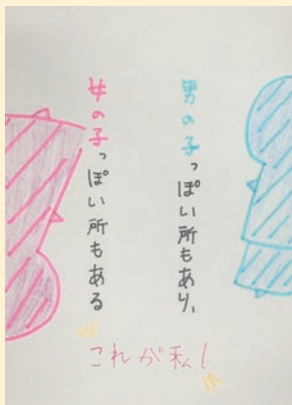 男の子っぽい所もあり、
女の子っぽい所もある
これが私!